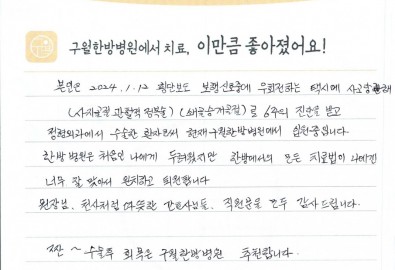 구월한방병원에서 치료, 이만큼 좋아졌어요!
본인은 2024.1.12 횡단보도 보행신호중에 우회전하는 택시에 사고를
관혈적 정복술) 로 6주의 진단을 받고
정형외과에서 수술한 환자로써 현재 구월한방병원에서 입원중입니다
한방병원은 처음인 나에게 두려웠지만 한방에서의 모든 치료법이 나에겐
너무 잘 맞아서 완치하고 퇴원합니다
원장님, 천사처럼 따뜻한 간호사님들, 직원분들 모두 감사드립니다.
짠~ 수술후 회복은 구월한방병원 추천합니다.